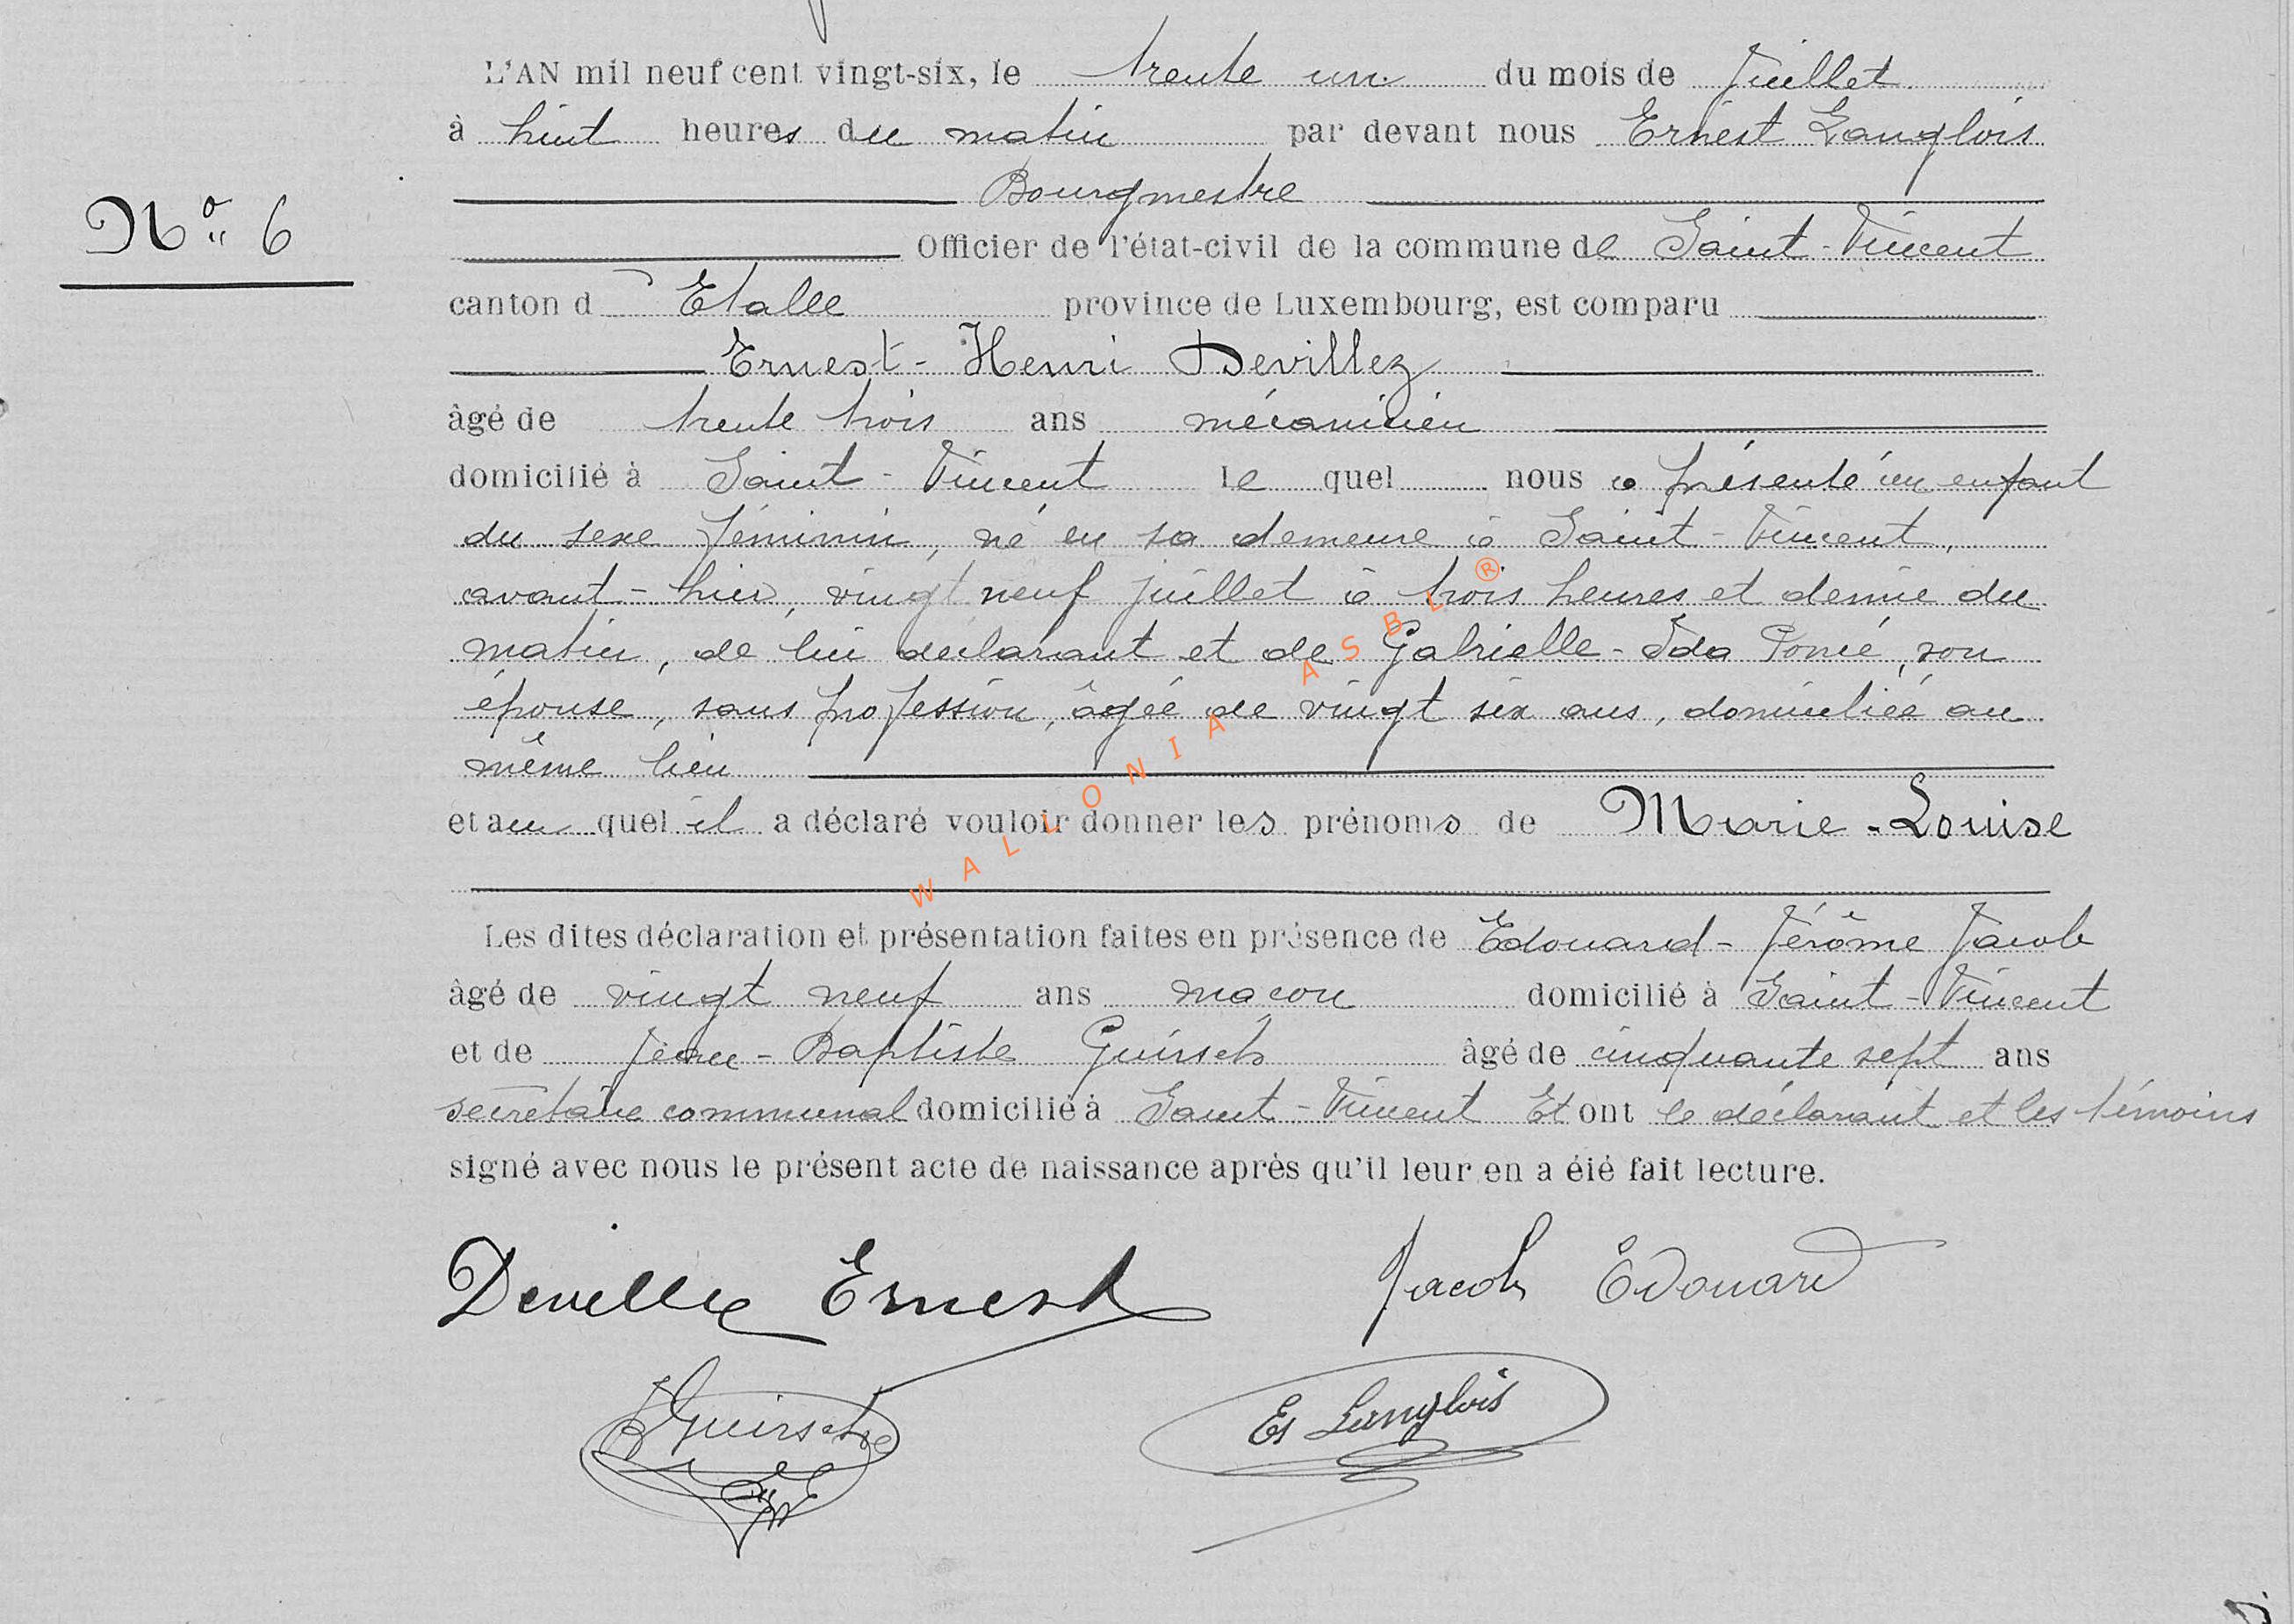 L'AN mil neuf cent vingt-six, le trente un du mois de Juillet
à huit heures du matin par devant nous Ernest Langlois
Bourgmestre
N° 6
Officier de l'état-civil de la commune de Saint-Vincent
canton d Etalle province de Luxembourg, est comparu
Ernest-Henri Devillez
âgé de trente trois ans mécanicien
domicilié à Saint-Vincent le quel nous a présenté un enfant
du sexe féminin, né en sa demeure à Saint-Vincent,
avant-hier, vingt neuf juillet à trois heures et demie du
matin, de lui déclarant et de Gabrielle-Ida Poncé, son
épouse, sans profession, âgée de vingt six ans, domiciliée au
même lieu
et au quel il a déclaré vouloir donner les prénoms de Marie-Louise
WALLONIA ASBL ®
Les dites déclaration et présentation faites en présence de Edouard-Jérôme Jacob
âgé de vingt neuf ans maçon domicilié à Saint-Vincent
et de Jean-Baptiste Guirsch âgé de cinquante sept ans
secrétaire communal domicilié à Saint-Vincent Et ont le déclarant et les témoins
signé avec nous le présent acte de naissance après qu'il leur en a été fait lecture.
Devillez Ernest Jacob Edouard
Guirsch Es Langlois